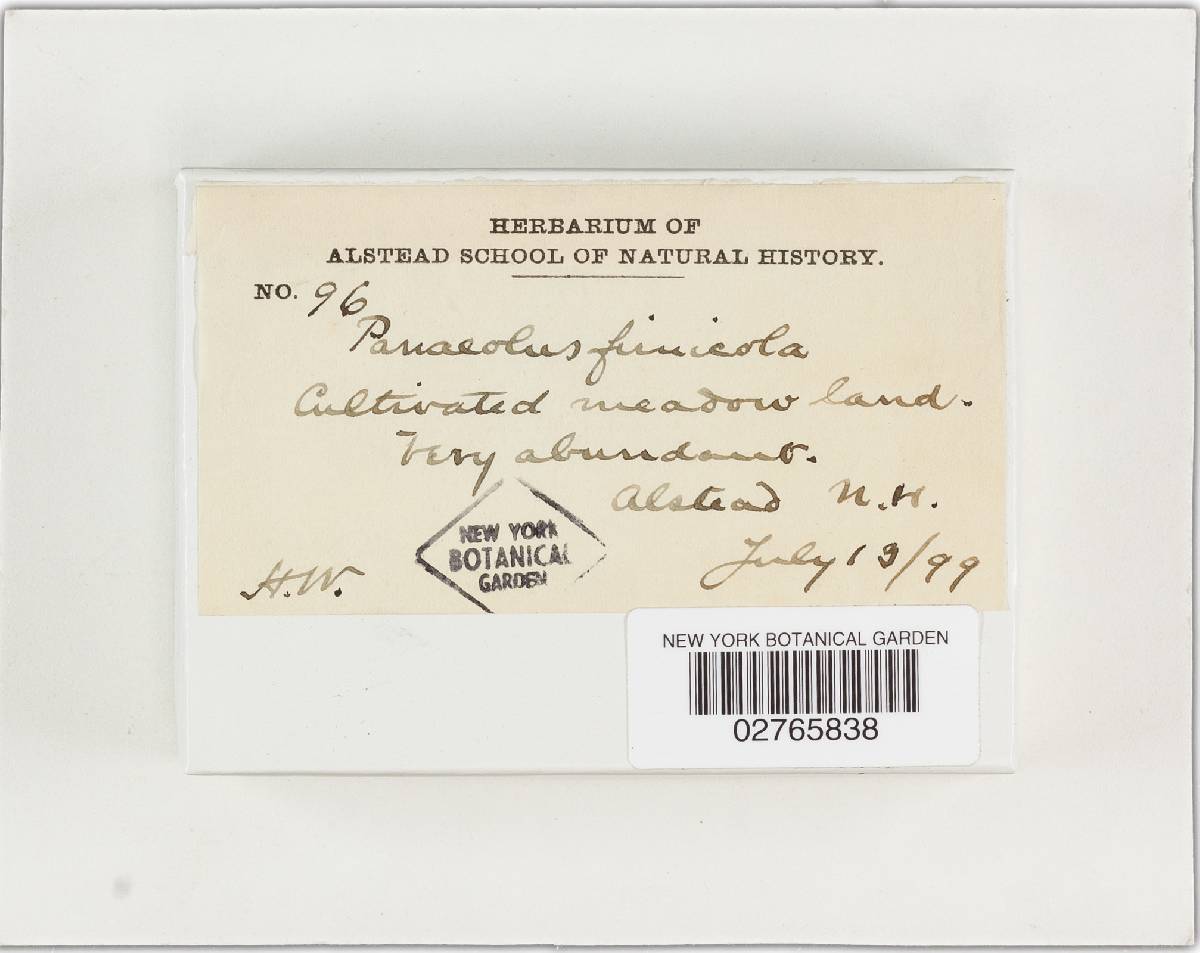 HERBARIUM OF
ALSTEAD SCHOOL OF NATURAL HISTORY.
NO. 96
Panaeolus fimicola
Cultivated meadow land.
Very abundant.
Alstead N.H.
July 13/99
H.W.
NEW YORK
BOTANICAL
GARDEN
NEW YORK BOTANICAL GARDEN
02765838